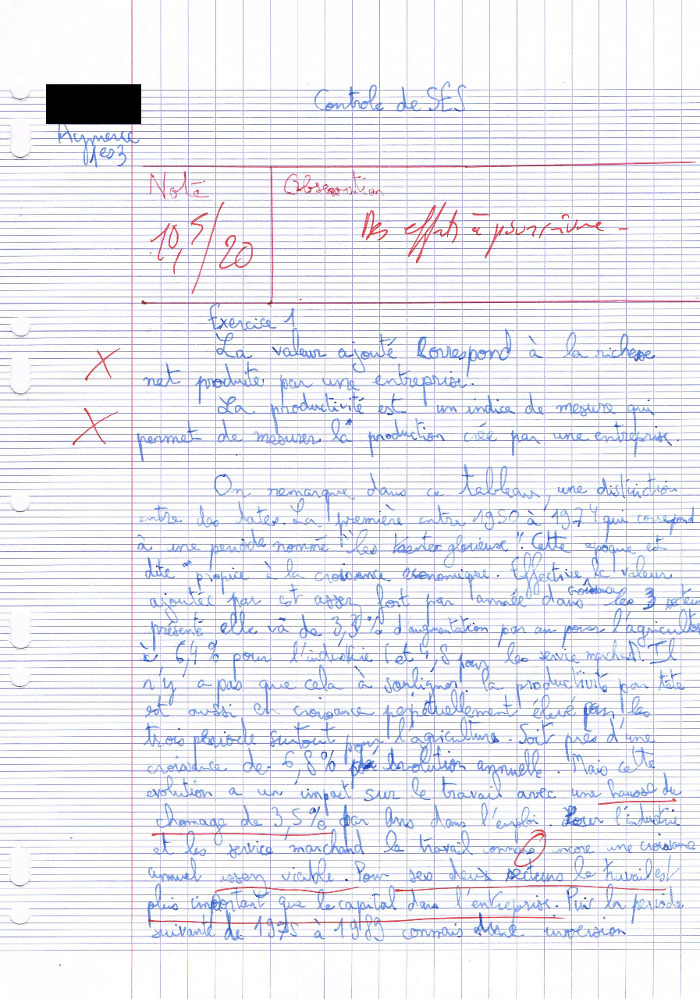 Controle de SES
Aymeric
1e03
Note
Observation
10,5/20
Des efforts à poursuivre -
Exercice 1
La valeur ajouté Correspond à la richesse
net produite par une entreprise.
La productivité est un indice de mesure qui
permet de mesurer la production créé par une entreprise.
On remarque dans ce tableau, une distinction
entre des dates. La première entre 1950 à 1974 qui correspond
à une periode nommé "les trentes glorieuse". Cette epoque est
dite propice à la croissance economique. Effective la valeur
ajoutée par est assez fort par année dans les 3 secteur
croissance
présenté elle va de 3,3% d'augmentation par an pour l'agriculture
à 6,4% pour l'industrie (et 4,8 pour les service marchand). Il
n'y a pas que cela à souligner la productivité par tête
est aussi en croissance perpetuellement élevé par les
trois periode surtout pour l'agriculture. Soit près d'une
croissance de 6,8% evolution annuelle. Mais cette
evolution a un impact sur le travail avec une hausse de
chomage de 3,5% par ans dans l'emploi. Pour l'industrie
et les service marchand le travail connais encore une croissance
annuel assez viable. Pour ses deux secteurs le travail est
plus important que le capital dans l'entreprise. Puis la periode
suivante de 1975 à 1989 connais une inversion